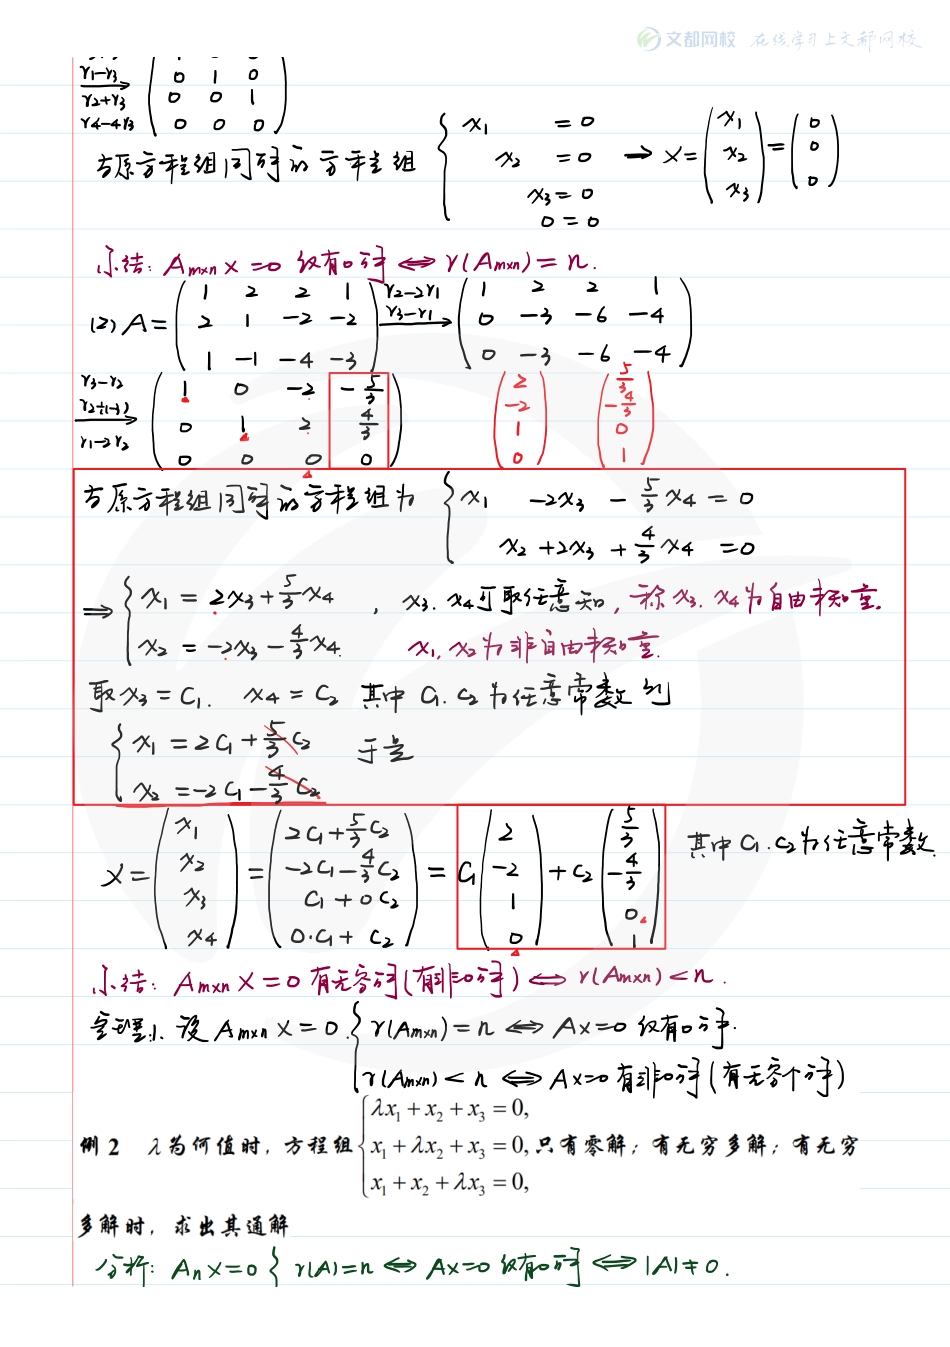 文都网校 在线学习上文都网校
r₁-r₃
r₂+r₃
r₄-4r₃
0 1 0
0 0 1
0 0 0
与原方程组同解的方程组 { x₁ = 0
x₂ = 0
x₃ = 0
0 = 0
→ X = (x₁ x₂ x₃) = (0 0 0)
小结: Aₘₓₙ X = 0 仅有0解 ⟺ r(Aₘₓₙ) = n.
(2) A = ( 1 2 2 1
2 1 -2 -2
1 -1 -4 -3 )
r₂-2r₁
r₃-r₁
→ ( 1 2 2 1
0 -3 -6 -4
0 -3 -6 -4 )
r₃-r₂
r₂÷(-3)
r₁-2r₂
→ ( 1 0 -2 -5/3
0 1 2 4/3
0 0 0 0 )
( 2 -2 1 0 ) ( 5/3 -4/3 0 1 )
与原方程组同解的方程组为 { x₁ -2x₃ - 5/3 x₄ = 0
x₂ +2x₃ + 4/3 x₄ = 0
⇒ { x₁ = 2x₃ + 5/3 x₄ , x₃. x₄可取任意知, 称 x₃. x₄为自由未知量.
x₂ = -2x₃ - 4/3 x₄. x₁, x₂为非自由未知量.
取 x₃ = C₁. x₄ = C₂ 其中 C₁. C₂为任意常数 则
{ x₁ = 2C₁ + 5/3 C₂ 于是
x₂ = -2C₁ - 4/3 C₂
X = (x₁ x₂ x₃ x₄) = ( 2C₁+5/3 C₂ -2C₁-4/3 C₂ C₁+0C₂ 0·C₁+C₂ ) = C₁ ( 2 -2 1 0 ) + C₂ ( 5/3 -4/3 0 1 ) 其中 C₁. C₂为任意常数.
小结: Aₘₓₙ X = 0 有无穷解(有非0解) ⟺ r(Aₘₓₙ) < n.
定理1. 设 Aₘₓₙ X = 0. { r(Aₘₓₙ) = n ⟺ AX=0 仅有0解.
r(Aₘₓₙ) < n ⟺ AX=0 有非0解 (有无穷个解)
例 2 λ 为何值时, 方程组 { λx₁ + x₂ + x₃ = 0,
x₁ + λx₂ + x₃ = 0, 只有零解; 有无穷多解; 有无穷
x₁ + x₂ + λx₃ = 0,
多解时, 求出其通解
分析: Aₙ X=0 { r(A)=n ⟺ AX=0 仅有0解 ⟺ |A|≠0.